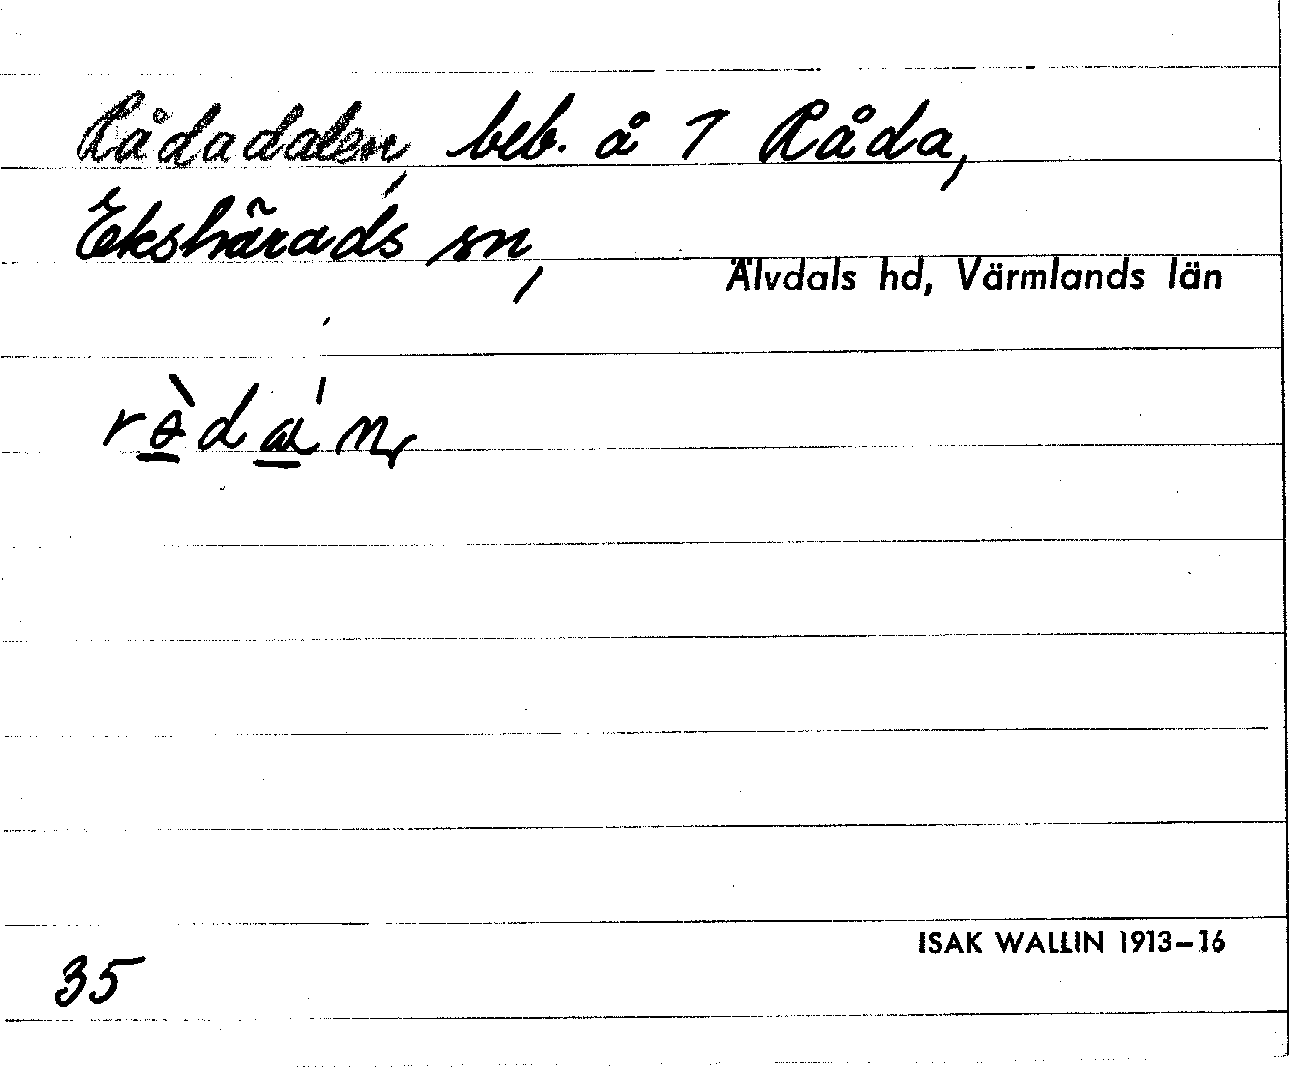 Rådadalen, beb. å 1 Råda,
Ekshärads sn,
Älvdals hd, Värmlands län
ISAK WALLIN 1913–16
35